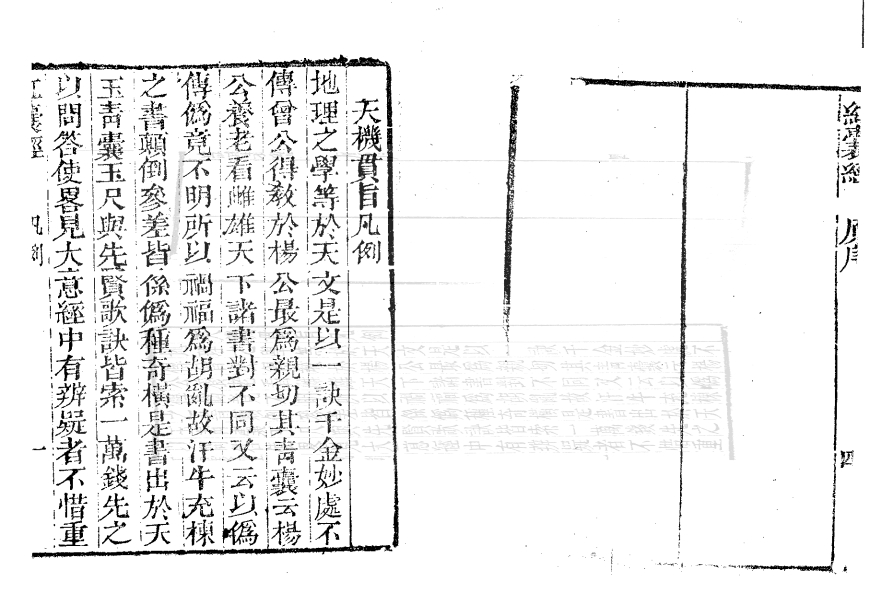 紅囊經 原序 四
天機貫旨凡例
地理之學等於天文是以一訣千金妙處不
傳曾公得教於楊公最爲親切其靑囊云楊
公養老看雌雄天下諸書對不同又云以僞
傳僞竟不明所以禍福爲胡亂故汗牛充棟
之書顛倒參差皆係僞種奇橫是書出於天
玉靑囊玉尺與先賢歌訣皆索一萬錢先之
以問答使畧見大意經中有辨疑者不惜重
紅囊經 凡例 一